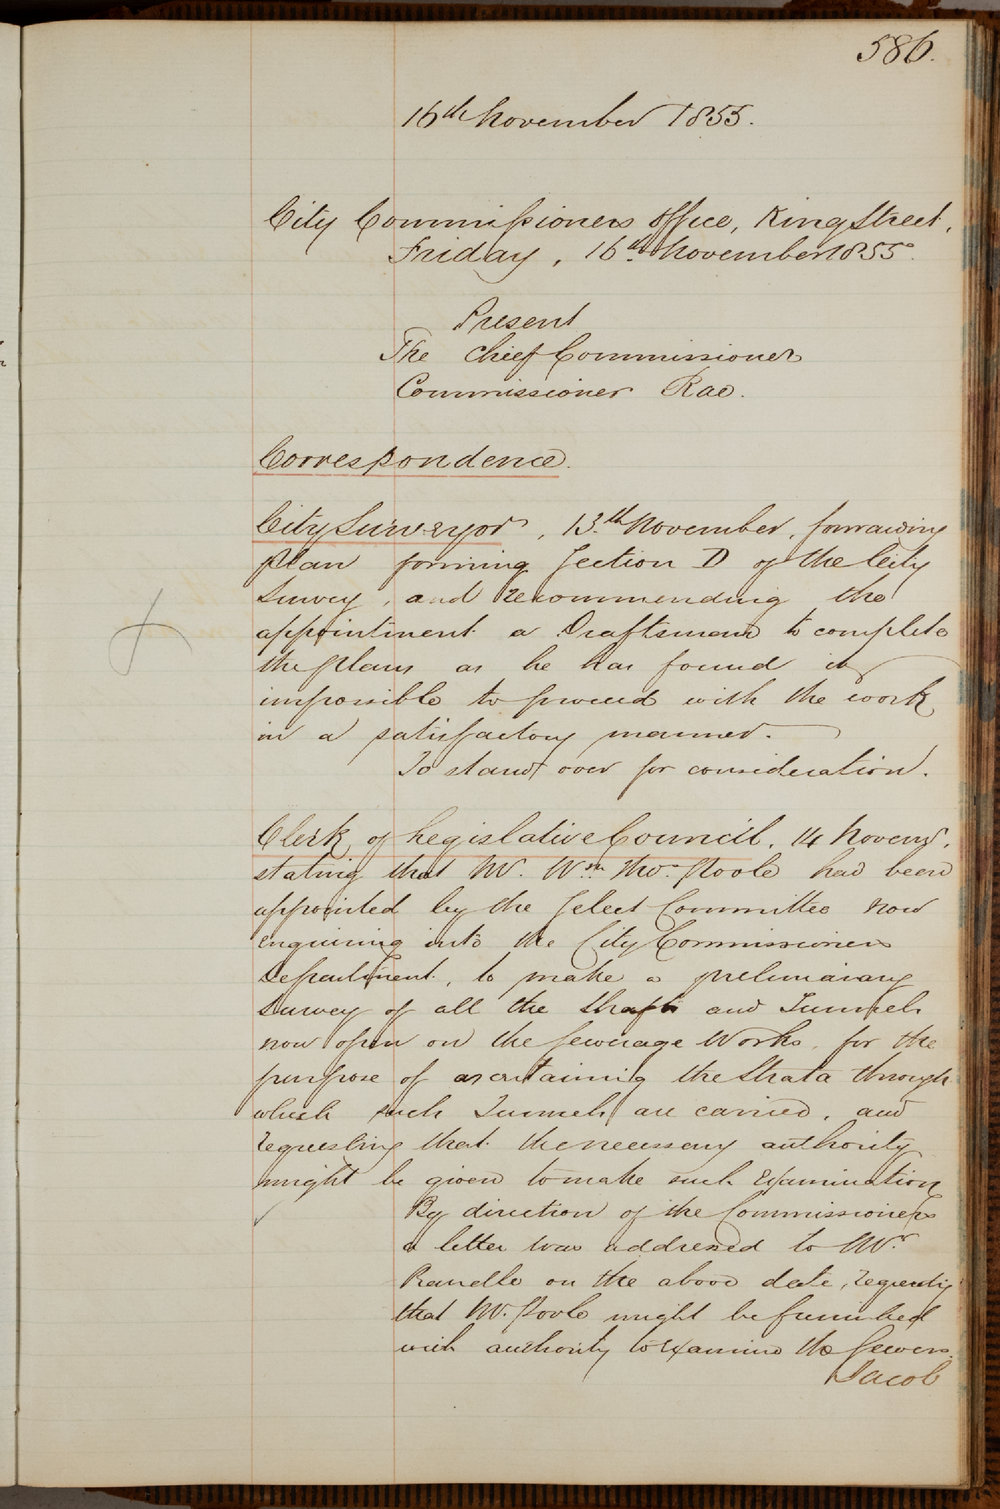 586.
16th November 1855.
City Commissioners Office, King Street,
Friday, 16th November 1855.
Present
The Chief Commissioner
Commissioner Rae.
Correspondence.
City Surveyor, 13th November, forwarding
plan forming Section D of the City
Survey, and recommending the
appointment a Draftsman to complete
the plans as he has found it
impossible to proceed with the work
in a satisfactory manner.
To stand over for consideration.
Clerk of Legislative Council, 14 Novemr.
stating that Mr. Wm. Thos. Poole had been
appointed by the Select Committee now
enquiring into the City Commissioners
Department, to make a preliminary
survey of all the Shafts and Tunnels
now open on the Sewerage Works, for the
purpose of ascertaining the Strata through
which such Tunnels are carried, and
requesting that the necessary authority
might be given to make such Examination
By direction of the Commissioners
a letter was addressed to Mr.
Randle on the above date, requesting
that Mr. Poole might be furnished
with authority to examine the Sewers.
Jacob